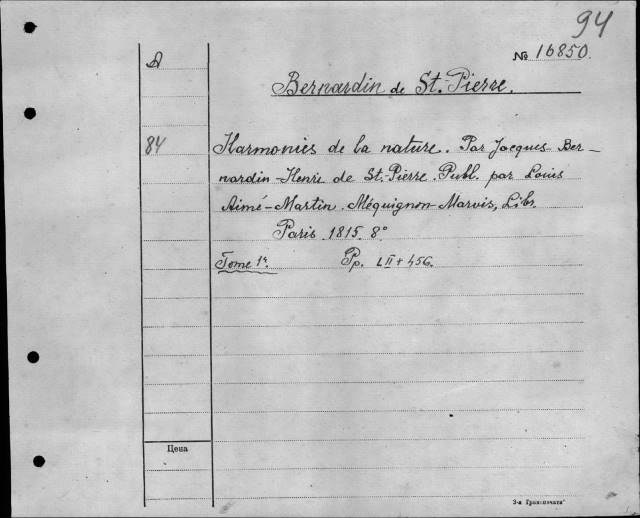 94
№ 16850.
A
Bernardin de St. Pierre.
84
Harmonies de la nature. Par Jacques-Ber-
nardin-Henri de St. Pierre. Publ. par Louis
Aimé-Martin. Méquignon-Marvis, Libr.
Paris. 1815. 8°
Tome 1r. Pp. LII + 456.
Цена